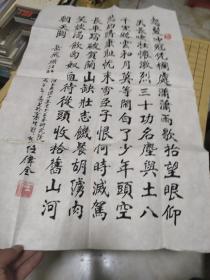 怒髮沖冠憑欄處瀟瀟雨歇抬望眼仰
天長嘯壯懷激烈三十功名塵與土八
千里路雲和月莫等閒白了少年頭空
悲切靖康恥猶未雪臣子恨何時滅駕
長車踏破賀蘭山缺壯志饑餐胡虜肉
笑談渴飲匈奴血待從頭收拾舊山河
朝天闕
岳飛滿江紅